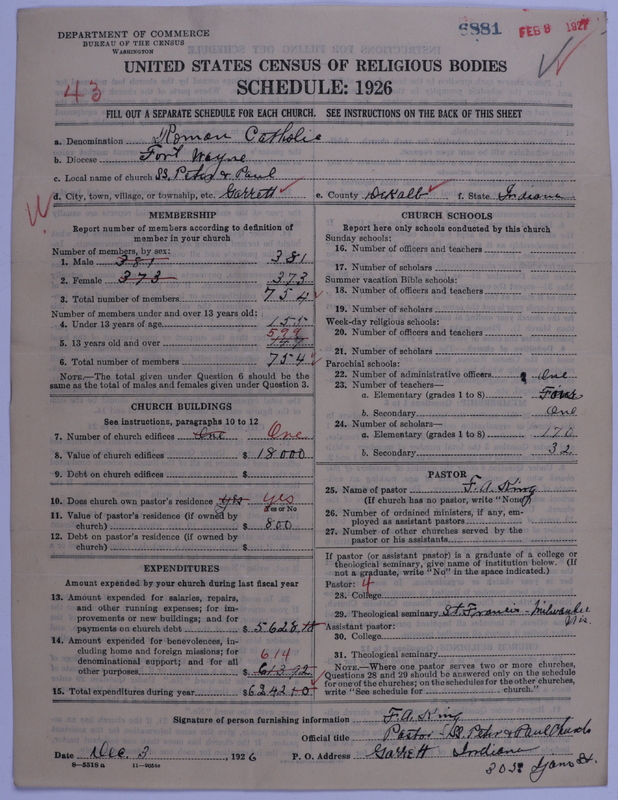 6881 FEB 9 1927
DEPARTMENT OF COMMERCE
BUREAU OF THE CENSUS
WASHINGTON
UNITED STATES CENSUS OF RELIGIOUS BODIES
43
SCHEDULE: 1926
FILL OUT A SEPARATE SCHEDULE FOR EACH CHURCH. SEE INSTRUCTIONS ON THE BACK OF THIS SHEET
a. Denomination Roman Catholic
b. Diocese Fort Wayne
c. Local name of church SS. Peter & Paul
d. City, town, village, or township, etc. Garrett e. County DeKalb f. State Indiana
MEMBERSHIP
Report number of members according to definition of member in your church
Number of members, by sex:
1. Male 381 381
2. Female 373 373
3. Total number of members 754
Number of members under and over 13 years old:
4. Under 13 years of age 155
599
5. 13 years old and over
6. Total number of members 754
NOTE.—The total given under Question 6 should be the same as the total of males and females given under Question 3.
CHURCH BUILDINGS
See instructions, paragraphs 10 to 12
7. Number of church edifices One One
8. Value of church edifices $ 18000
9. Debt on church edifices $
10. Does church own pastor's residence yes yes
Yes or No
11. Value of pastor's residence (if owned by church) $ 800
12. Debt on pastor's residence (if owned by church) $
EXPENDITURES
Amount expended by your church during last fiscal year
13. Amount expended for salaries, repairs, and other running expenses; for improvements or new buildings; and for payments on church debt $ 5628
14. Amount expended for benevolences, including home and foreign missions; for denominational support; and for all other purposes $ 614 613 72
15. Total expenditures during year $ 6242
CHURCH SCHOOLS
Report here only schools conducted by this church
Sunday schools:
16. Number of officers and teachers
17. Number of scholars
Summer vacation Bible schools:
18. Number of officers and teachers
19. Number of scholars
Week-day religious schools:
20. Number of officers and teachers
21. Number of scholars
Parochial schools:
22. Number of administrative officers One
23. Number of teachers—
a. Elementary (grades 1 to 8) Four
b. Secondary One
24. Number of scholars—
a. Elementary (grades 1 to 8) 170
b. Secondary 32
PASTOR
25. Name of pastor F. A. King
(If church has no pastor, write "None")
26. Number of ordained ministers, if any, employed as assistant pastors
27. Number of other churches served by the pastor or his assistants
If pastor (or assistant pastor) is a graduate of a college or theological seminary, give name of institution below. (If not a graduate, write "No" in the space indicated.)
Pastor: 4
28. College
29. Theological seminary St. Francis - Milwaukee Wis.
Assistant pastor:
30. College
31. Theological seminary
NOTE.—Where one pastor serves two or more churches, Questions 28 and 29 should be answered only on the schedule for one of the churches; on the schedules for the other churches, write "See schedule for church."
Signature of person furnishing information F. A. King
Official title Pastor - SS. Peter & Paul Church
Date Dec. 3, 1926 P. O. Address Garrett Indiana
8—5518 a